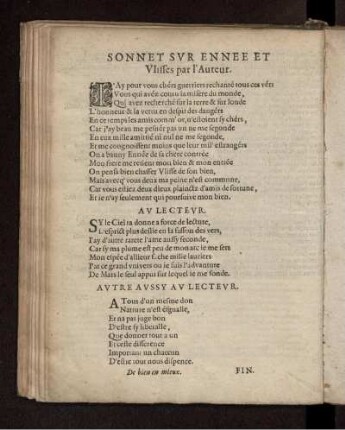 SONNET SVR ENNEE ET
Vlisses par l'Auteur.
I'Ay pour vous chers guerriers rechanté tous ces vers
Vous qui avés couru la misere du monde,
Qui avés recherché sur la terre & sur londe
L'honneur & la vertu en despit des dangers
En ce temps les amis comm' or, n'estoient sy chers,
Car j'ay beau me peiner pas un ne me segonde
En eux mille amitié ni nul ne me segonde,
Et me congnoissent moins que leur mil' estrangers
On a banny Ennée de sa chere contrée
Mon frere me retient mon bien & mon entrée
On pensa bien chasser Vlisse de son bien,
Mais avecq' vous deux ma peine n'est commune,
Car vous estiez deux dieux plaincts d'amis de fortune,
Et ie n'ay seulement qui poursuive mon bien.
AV LECTEVR.
SY le Ciel ta donne a force de lecture,
L'esprict plus destie en la fasson des vers,
I'ay d'autre rareté l'ame aussy seconde,
Car sy ma plume est peu de mon arc ie me sers
Mon espée d'allieur f. che mille lauriers
Par ce grand vnivers ou ie fais l'advanture
De Mars le seul appuy sur lequel ie me fonde.
AVTRE AVSSY AV LECTEVR.
A Tous d'un mesme don
Nature n'est esgualle,
Et na pas juge bon
D'estre sy liberalle,
Que donner tout a un
Et ceste difference
Important un chascun
D'estre tout nous dispence.
De bien en mieux. FIN.